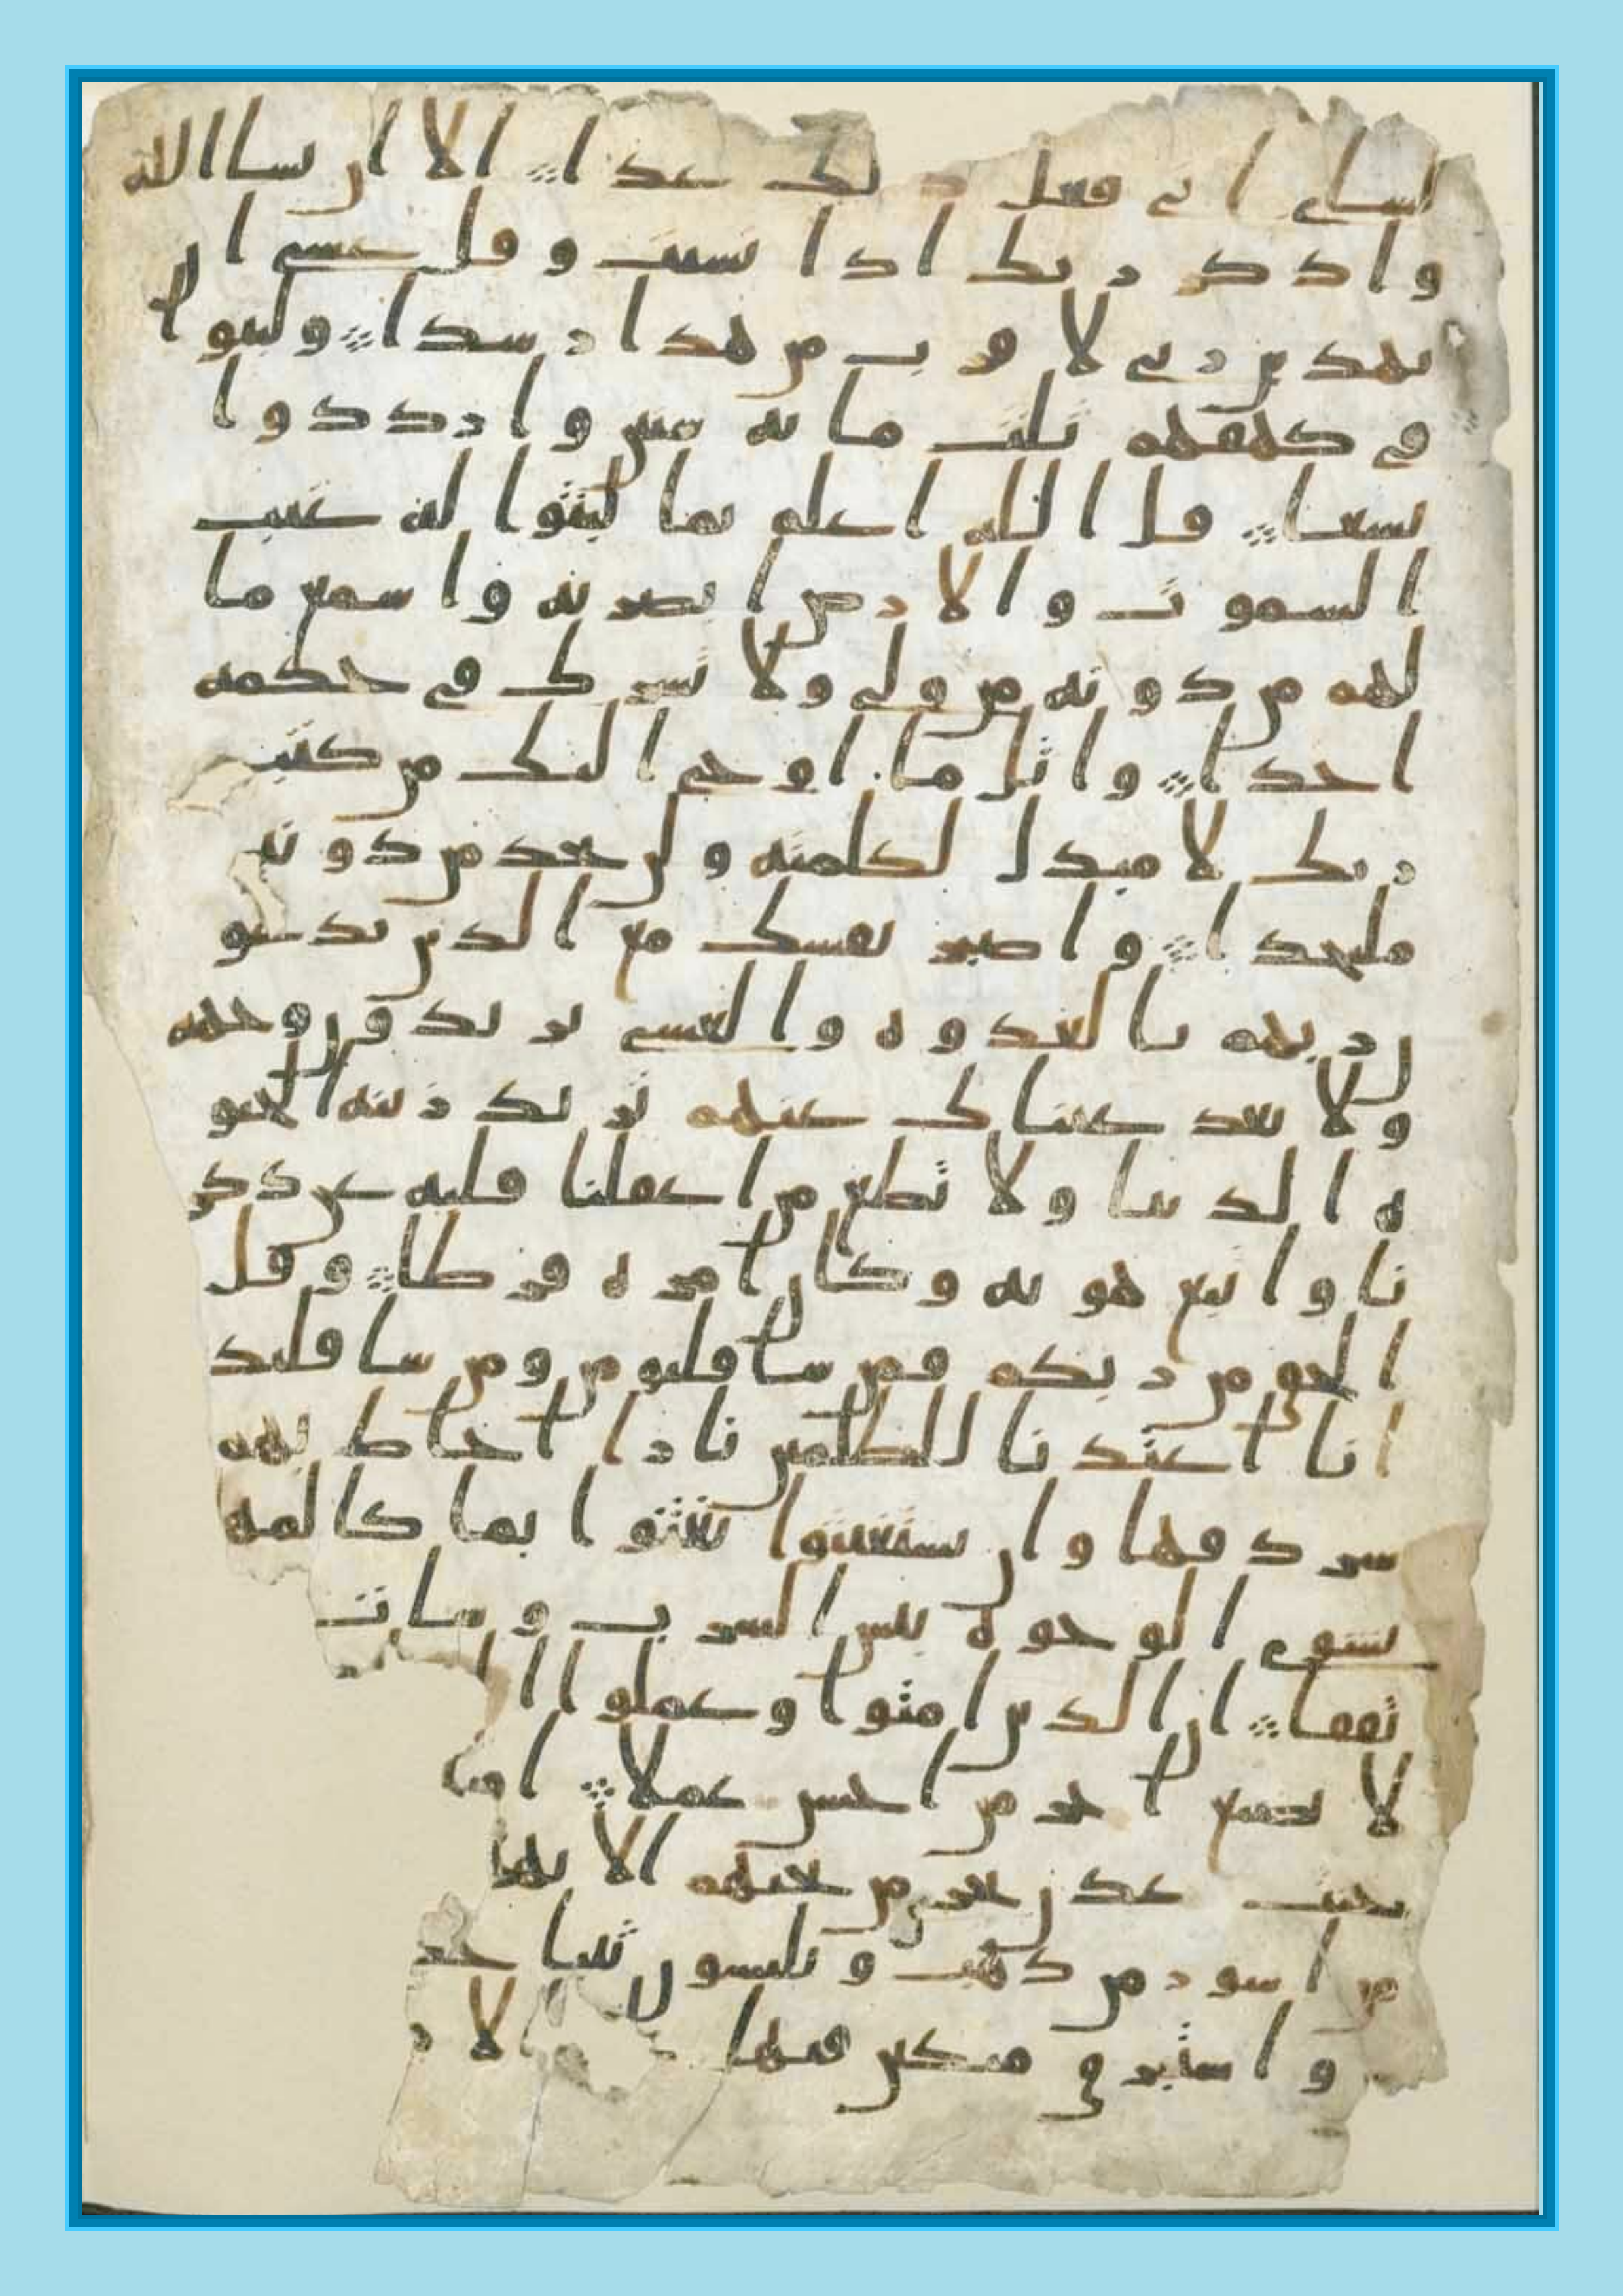 لشاى انى فعل ذلك غدا الا ان يشا الله
واذكر ربك اذا نسيت وقل عسى ان
يهدين ربى لاقرب من هذا رشدا ولبثوا
فى كهفهم ثلث مائه سنين وازددوا
تسعا قل الله اعلم بما لبثوا له غيب
السموت والارض ابصر به واسمع ما
لهم من دونه من ولى ولا تشرك فى حكمه
احدا واتل ما اوحى اليك من كتب
ربك لا مبدل لكلمته ولن تجد من دونه
ملتحدا واصبر نفسك مع الذين يدعو
ن ربهم بالغدوه والعشى يريدون وجهه
ولا تعد عيناك عنهم تريد زينه الحيو
ه الدنيا ولا تطع من اغفلنا قلبه عن ذكر
نا واتبع هويه وكان امره فرطا وقل
الحق من ربكم فمن شا فليومن ومن شا فليك
انا اعتدنا للظلمين نارا احاط بهم
سردقها وان يستغيثوا يغثوا بما كالمه
يشوى الوجوه بئس الشرب وسات
تفقا ان الذين امنوا وعملوا ال
لا نضيع اجر من احسن عملا
جنت عدن تجرى من تحتهم الانهر
من اسور من ذهب ويلبسون ثيبا خضر
واستبرق متكين فيها الار